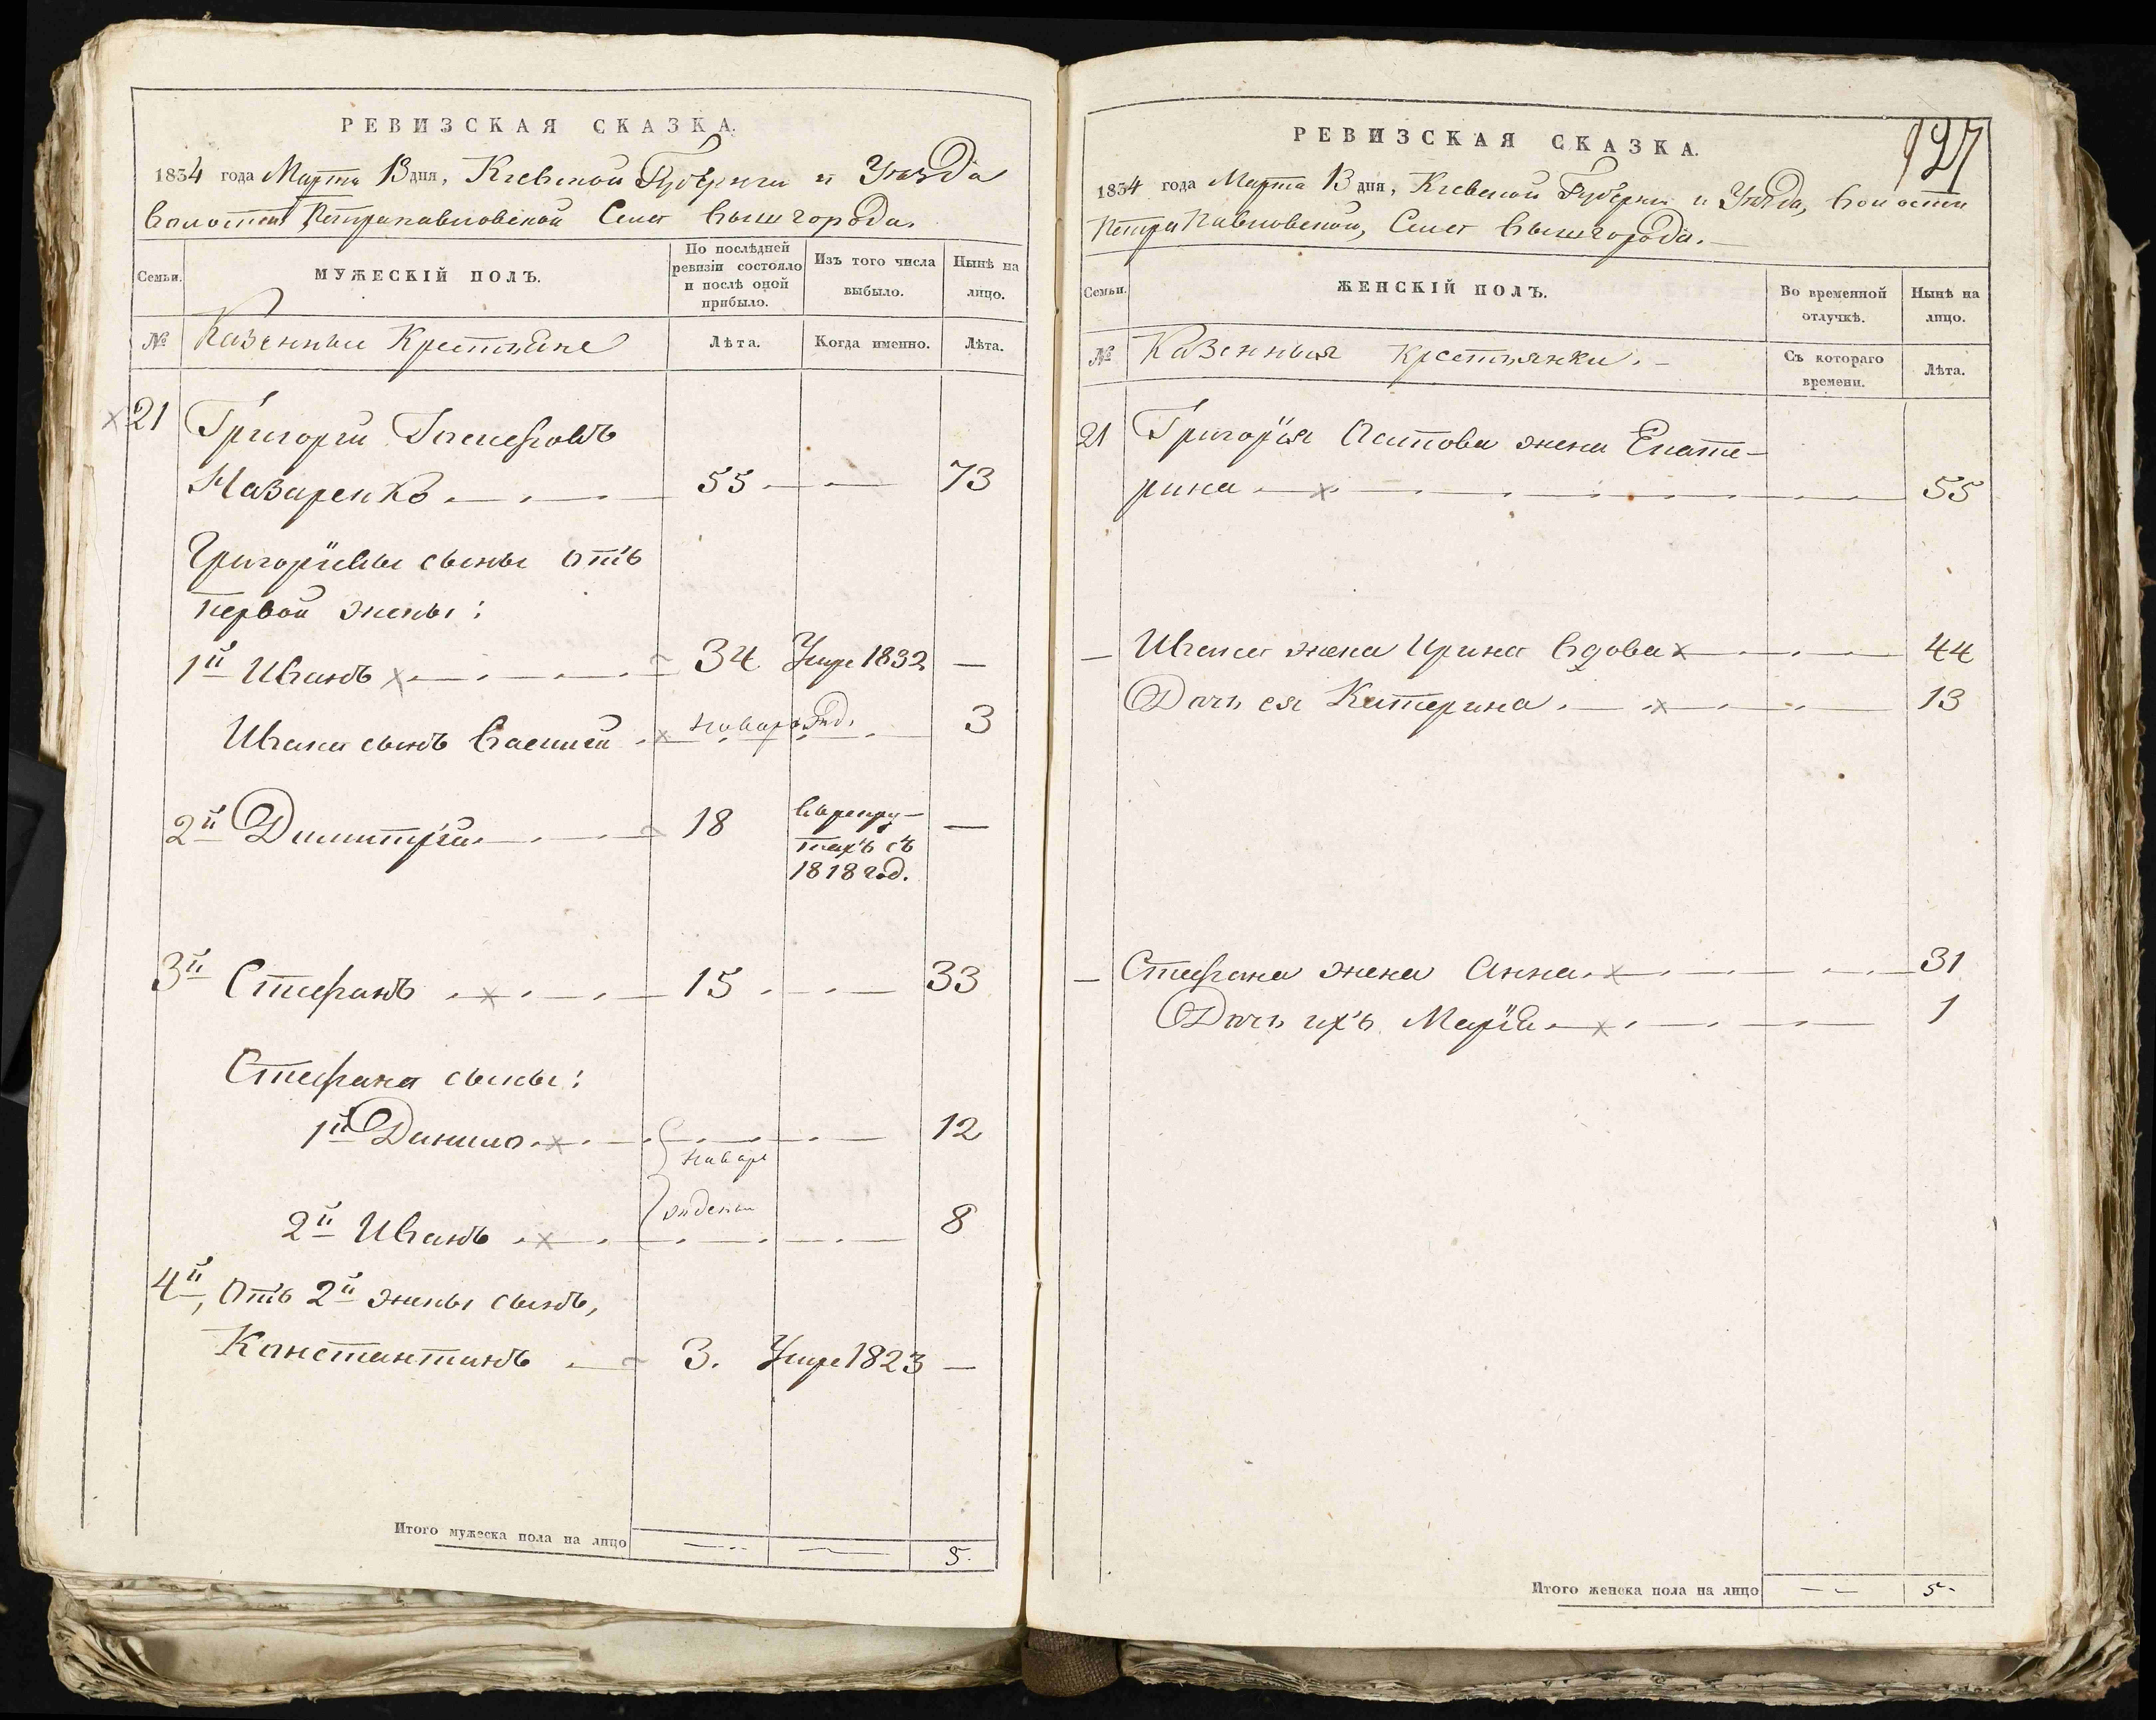 РЕВИЗСКАЯ СКАЗКА.
1834 года Марта 13 дня, Киевской Губернии и Уѣзда
Волости Петропавловской Села Вышгорода.
Семьи.
МУЖЕСКІЙ ПОЛЪ.
По послѣдней ревизіи состояло и послѣ оной прибыло.
Изъ того числа выбыло.
Нынѣ на лицо.
№
Казенные Крестьяне
Лѣта.
Когда именно.
Лѣта.
21 Григорій
Назаренко 55 73
Григорія сыны отъ
первой жены:
1й Иванъ 34 Умре 1832 —
Ивана сынъ Василій новорожд. 3
2й Димитрій 18 —
въ рекру-
тахъ съ
1818 год.
3й Стефанъ 15 33
Стефана сыны:
1й Данило 12
новоро
2й Иванъ жденны 8
4й, отъ 2й жены сынъ,
Константинъ 3. Умре 1823 —
Итого мужеска пола на лицо 5.
127
РЕВИЗСКАЯ СКАЗКА.
1834 года Марта 13 дня, Киевской Губерніи и Уѣзда, Волости
Петропавловской, Села Вышгорода.
Семьи.
ЖЕНСКІЙ ПОЛЪ.
Во временной отлучкѣ.
Нынѣ на лицо.
№
Казенныя крестьянки.
Съ котораго времени.
Лѣта.
21 Григорія жена Екате-
рина 55
— Ивана жена Ирина вдова 44
Дочь ея Катерина 13
— Стефана жена Анна 31
Дочь ихъ Марія 1
Итого женска пола на лицо 5